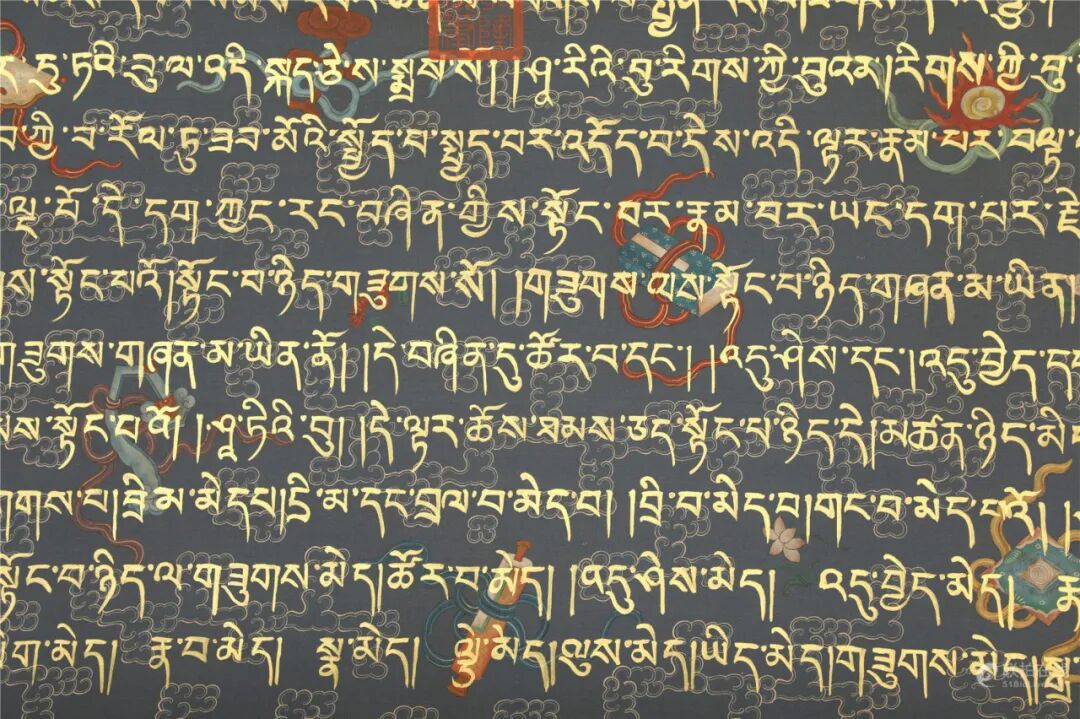 དུ་ཏའི་བུ་ལ་འདི་སྐད་ཅེས་སྨྲས་ས། །ཤཱ་རིའི་བུ་རིགས་ཀྱི་བུའམ།རིགས་ཀྱི་བུ་
ཀྱི་པ་རོལ་ཏུ་ཟབ་མོའི་སྤྱོད་པ་སྤྱད་པར་འདོད་པ་དེས་འདི་ལྟར་རྣམ་པར་བལྟ
ལྔ་པོ་དེ་དག་ཀྱང་རང་བཞིན་གྱིས་སྟོང་པར་རྣམ་པར་ཡང་དག་པར་རྗེ
ས་སྟོང་པའོ།སྟོང་པ་ཉིད་གཟུགས་སོ། །གཟུགས་ལས་སྟོང་པ་ཉིད་གཞན་མ་ཡིན།
གཟུགས་གཞན་མ་ཡིན་ནོ། །དེ་བཞིན་དུ་ཚོར་བ་དང་། །འདུ་ཤེས་དང་།འདུ་བྱེད་དང
ས་སྟོང་པའོ། །ཤཱ་ཏིའི་བུ། །དེ་ལྟར་ཆོས་ཐམས་ཅད་སྟོང་པ་ཉིད་དེ།མཚན་ཉིད་མེད
གགས་པ།དྲི་མ་མེདཔ།དྲི་མ་དང་བྲལ་བ་མེད་པ། །བྲི་བ་མེད་པ།གང་བ་མེད་པའོ། །
སྟོང་པ་ཉིད་ལ་གཟུགས་མེད།ཚོར་བ་མེད། །འདུ་ཤེས་མེད། འདུ་བྱེད་མེད། རྣ
མིག་མེད། རྣ་བ་མེད། སྣ་མེད། ལྕེ་མེད།ལུས་མེད།ཡིད་མེད།གཟུགས་མེད།སྒྲ